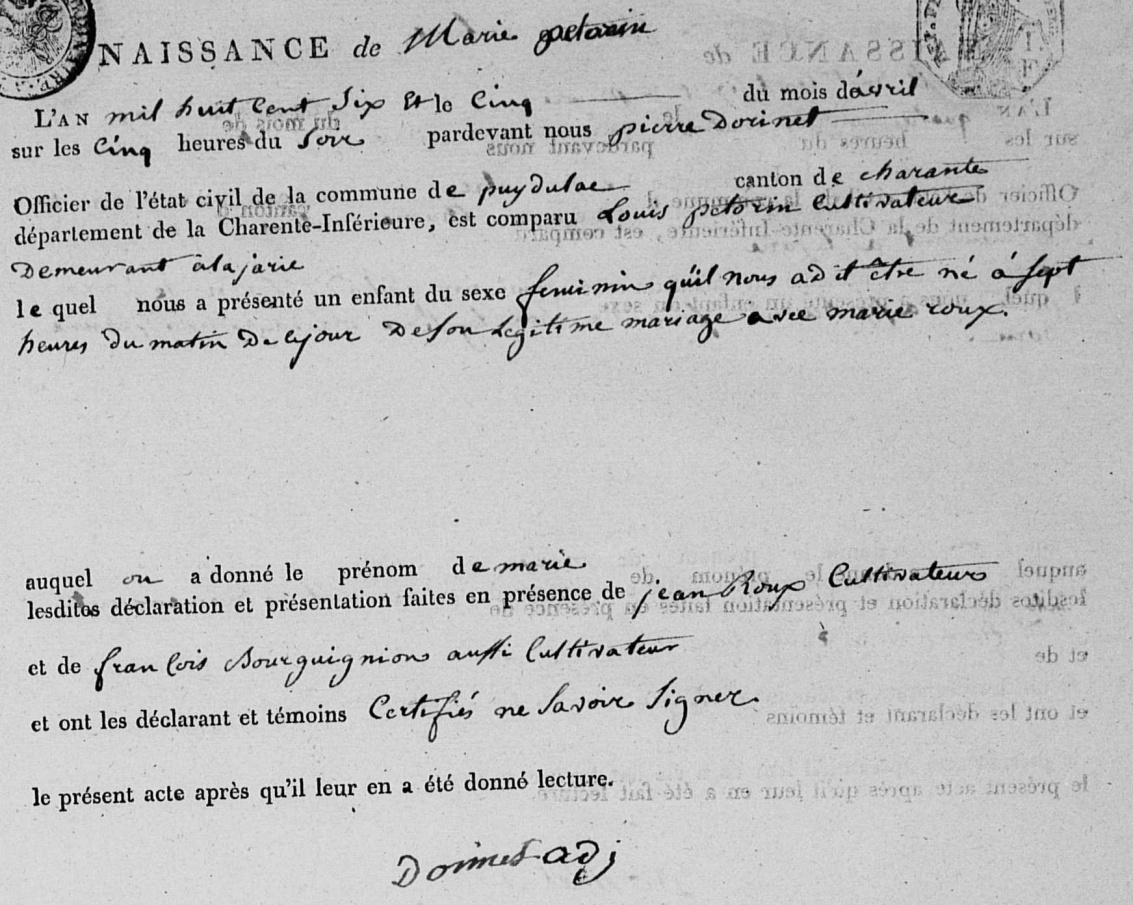 NAISSANCE de Marie petorin
L'AN mil huit Cent Six Et le Cinq du mois d'avril
sur les Cinq heures du Soir pardevant nous pierre Dorinet
Officier de l'état civil de la commune de puydulac canton de charante
département de la Charente-Inférieure, est comparu Louis petorin Cultivateur
Demeurant àla jarie
le quel nous a présenté un enfant du sexe feminin qu'il nous a dit être né à Sept
heures Du matin De Cejour De Son Legitime mariage avec marie roux.
auquel on a donné le prénom de marie
lesdites déclaration et présentation faites en présence de jean Roux Cultivateur
et de françois Bourguignion aussi Cultivateur
et ont les déclarant et témoins Certifiés ne Savoir Signer.
le présent acte après qu'il leur en a été donné lecture.
Dorinet adj